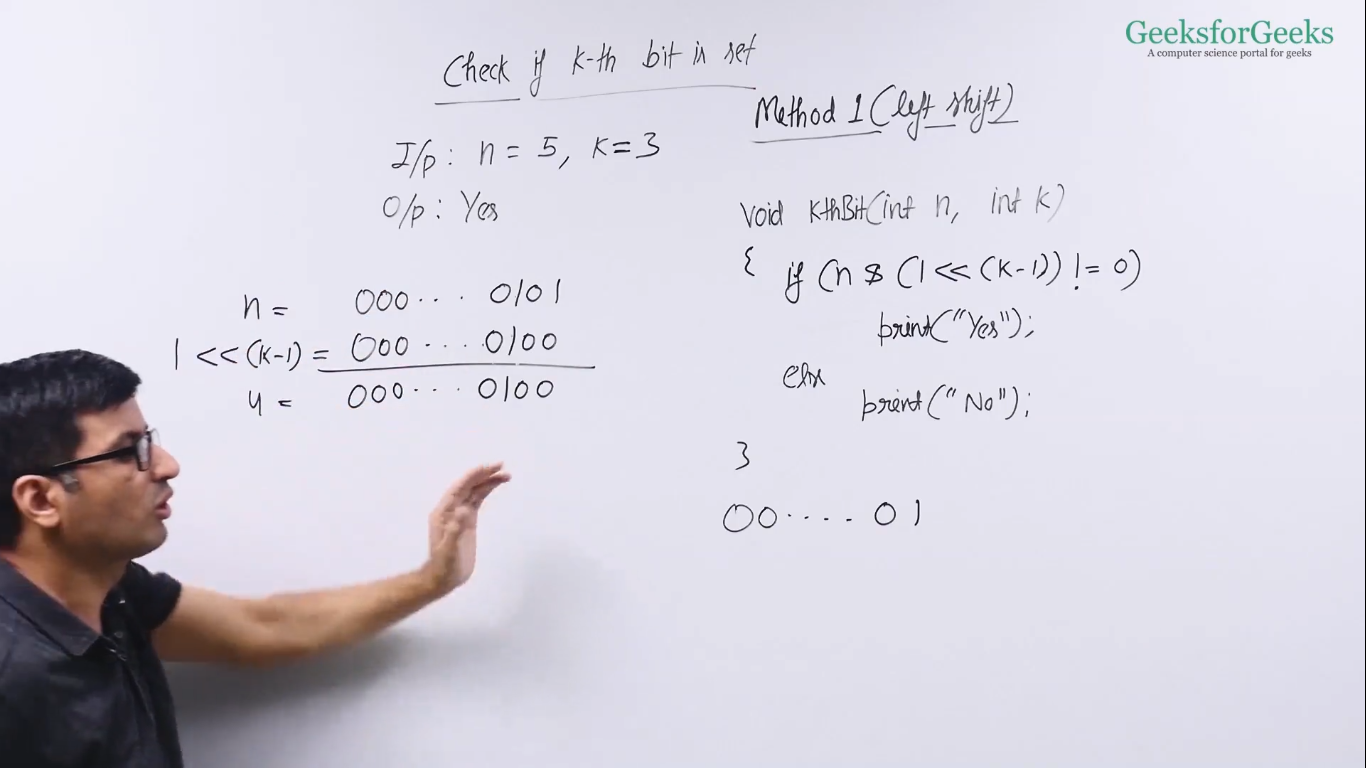 GeeksforGeeks
A computer science portal for geeks
Check if K-th bit is set
I/p: n = 5, K=3
O/p: Yes
n = 000.... 0101
1 << (K-1) = 000....0100
4 = 000....0100
Method 1 (left shift)
void KthBit(int n, int k)
{ if (n & (1 << (K-1)) != 0)
print("Yes");
else
print("No");
}
00.... 01